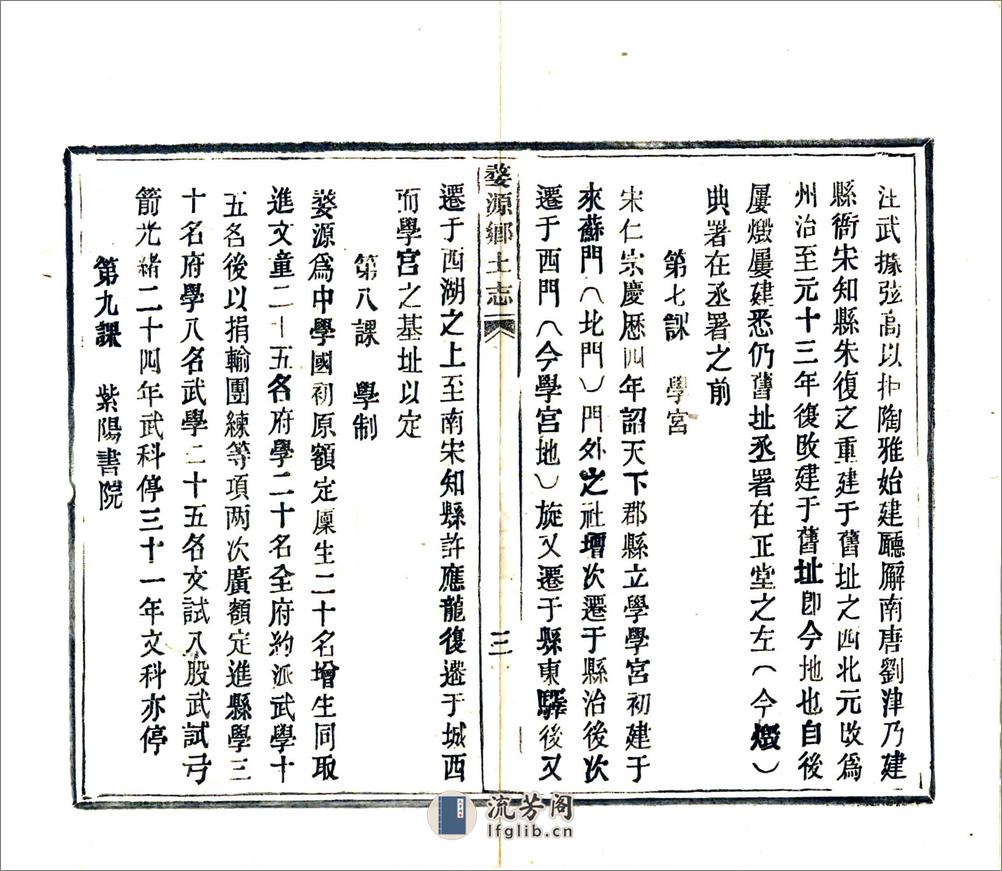 汪武據弦高以拒陶雅始建廳廨南唐劉津乃建
縣衙宋知縣朱復之重建于舊址之西北元改爲
州治至元十三年復改建于舊址卽今地也自後
屢燬屢建悉仍舊址丞署在正堂之左（今燬）
典署在丞署之前
第七課　學宮
宋仁宗慶歷四年詔天下郡縣立學學宮初建于
來蘇門（北門）門外之社壇次遷于縣治後次
遷于西門（今學宮地）旋又遷于縣東驛後又
婺源鄉土志
三
遷于西湖之上至南宋知縣許應龍復遷于城西
而學宮之基址以定
第八課　學制
婺源爲中學國初原額定廩生二十名增生同取
進文童二十五名府學二十名全府約派武學十
五名後以捐輸團練等項两次廣額定進縣學三
十名府學八名武學二十五名文試八股武試弓
箭光緒二十四年武科停三十一年文科亦停
第九課　紫陽書院
流芳阁
lfglib.cn